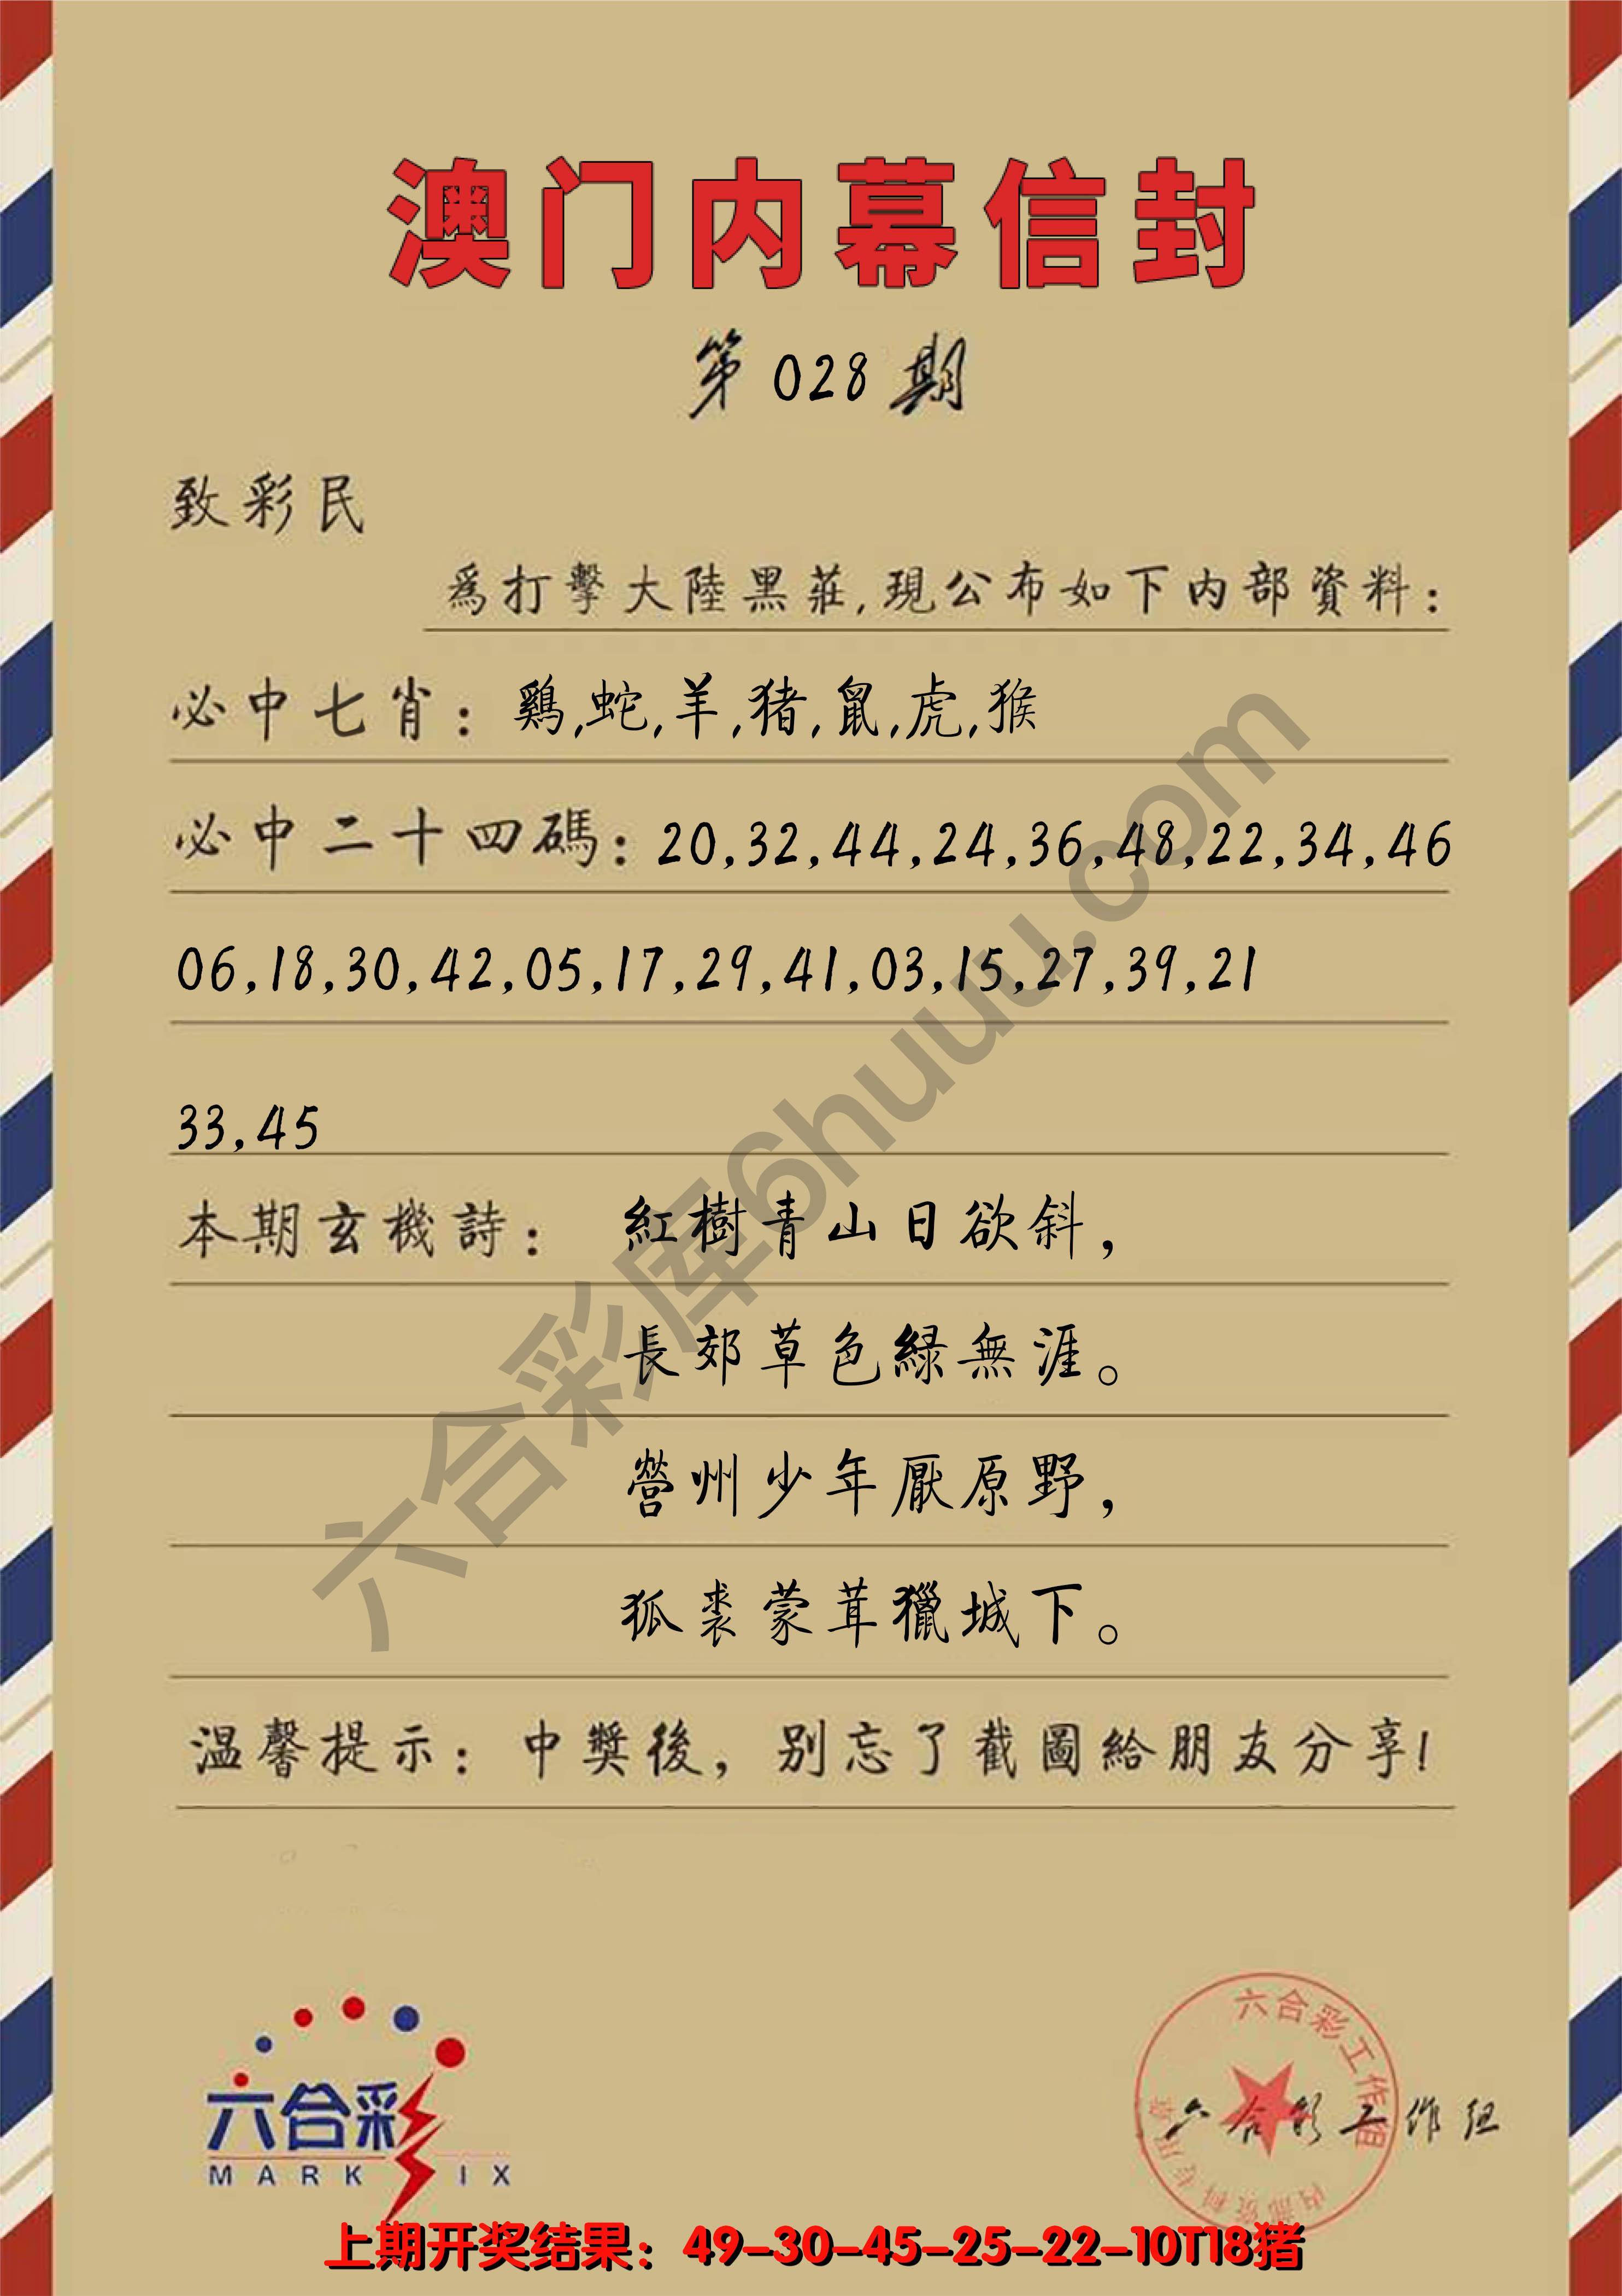 澳门内幕信封
第028期
致彩民
爲打擊大陸黑莊,現公布如下内部資料:
必中七肖: 鷄,蛇,羊,猪,鼠,虎,猴
必中二十四碼: 20,32,44,24,36,48,22,34,46
06,18,30,42,05,17,29,41,03,15,27,39,21
33,45
本期玄機詩: 紅樹青山日欲斜,
長郊草色緑無涯。
營州少年厭原野,
狐裘蒙茸獵城下。
温馨提示: 中獎後, 别忘了截圖給朋友分享!
六合彩库6huuu.com
六合彩
MARK IX
六合彩工作组
六合彩工作组
内部资料专用章
上期开奖结果: 49-30-45-25-22-10T18猪